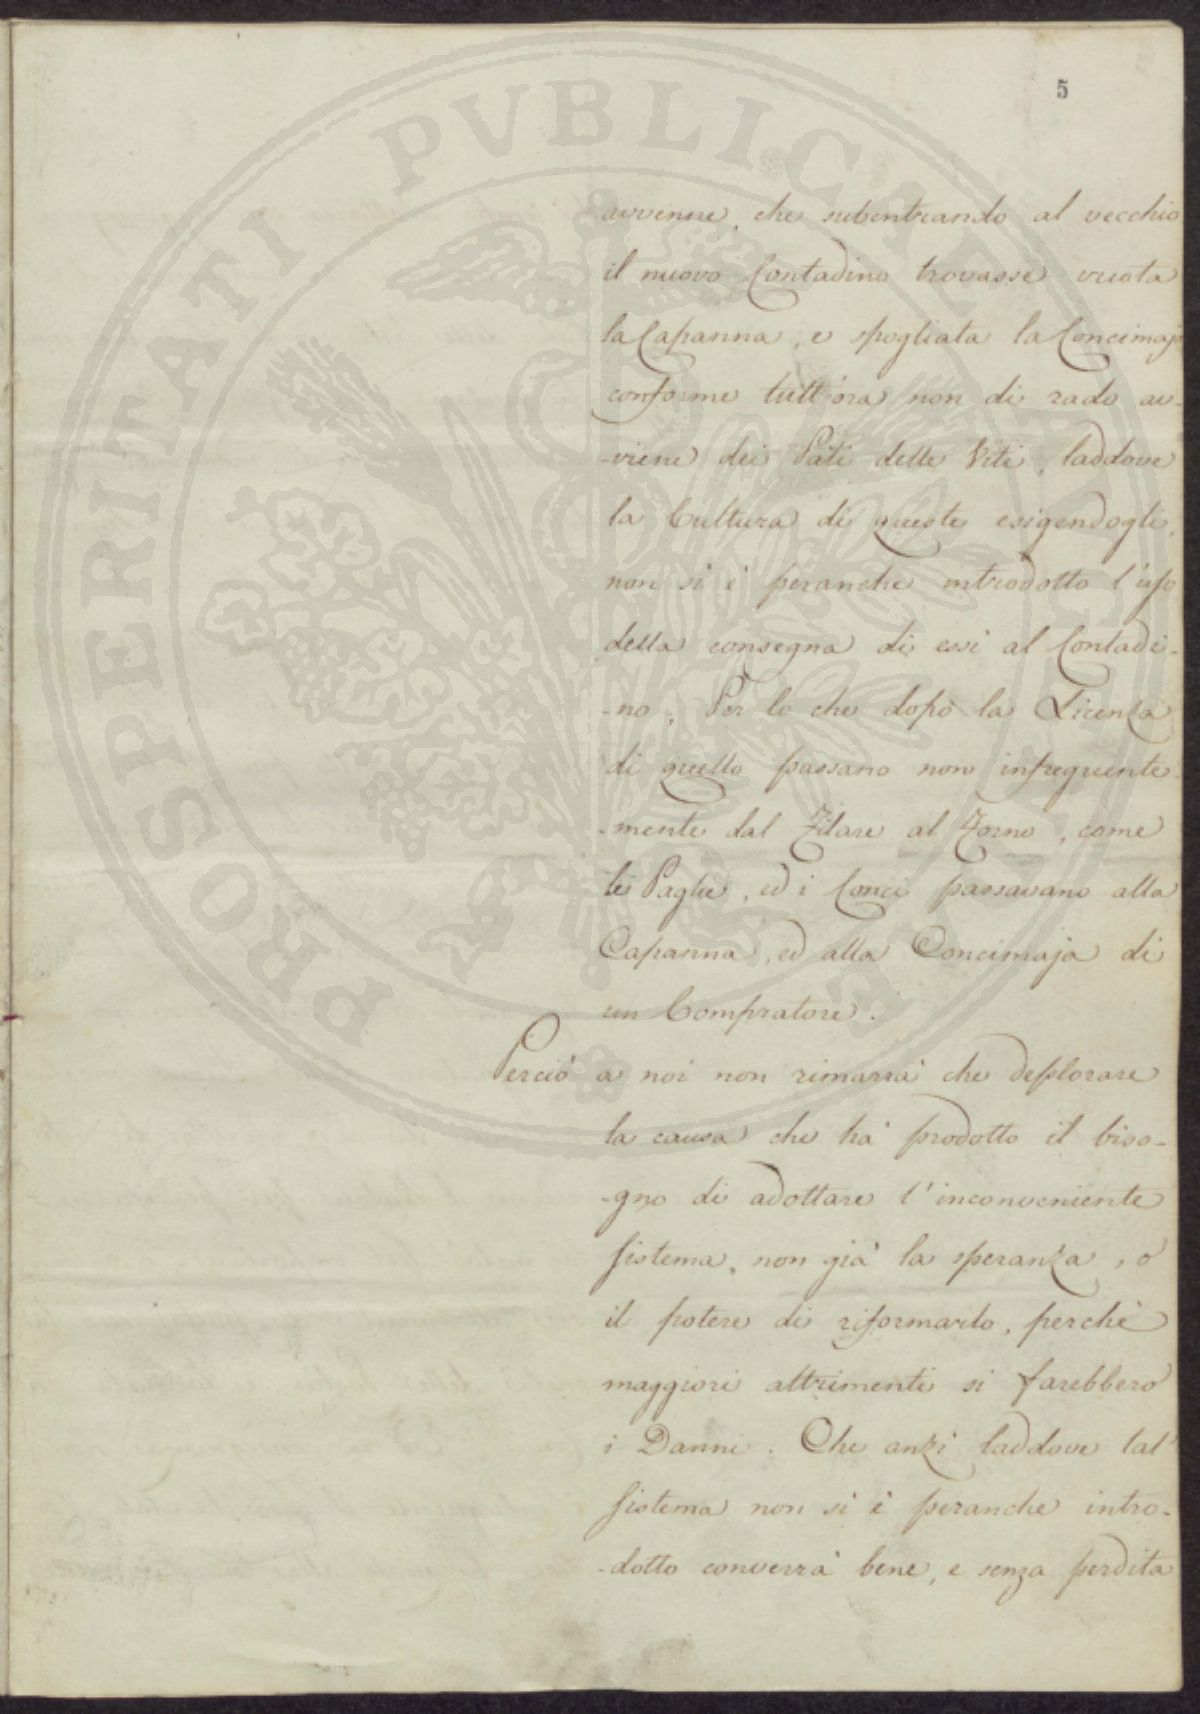 5
PROSPERITATI PVBLICAE AVGENDAE
avvenne, che subentrando al vecchio
il nuovo Contadino trovasse vuota
la Capanna, e spogliata la Concimaja
conforme tutt'ora non di rado av-
-viene dei Pali delle Viti, laddove
la Cultura di queste esigendogli,
non si è peranche introdotto l'uso
della consegna di essi al Contadi-
-no; Per lo che dopo la Licenza
di quello passano non infrequente-
-mente dal Filare al Forno, come
le Paglie, ed i Conci passavano alla
Capanna, ed alla Concimaja di
un Compratore.
Perciò a noi non rimarrà che deplorare
la causa che hà prodotto il biso-
-gno di adottare l'inconveniente
sistema, non già la speranza, o
il potere di riformarlo, perchè
maggiori altrimenti si farebbero
i Danni. Che anzi laddove tal'
sistema non si è peranche intro-
-dotto converrà bene, e senza perdita